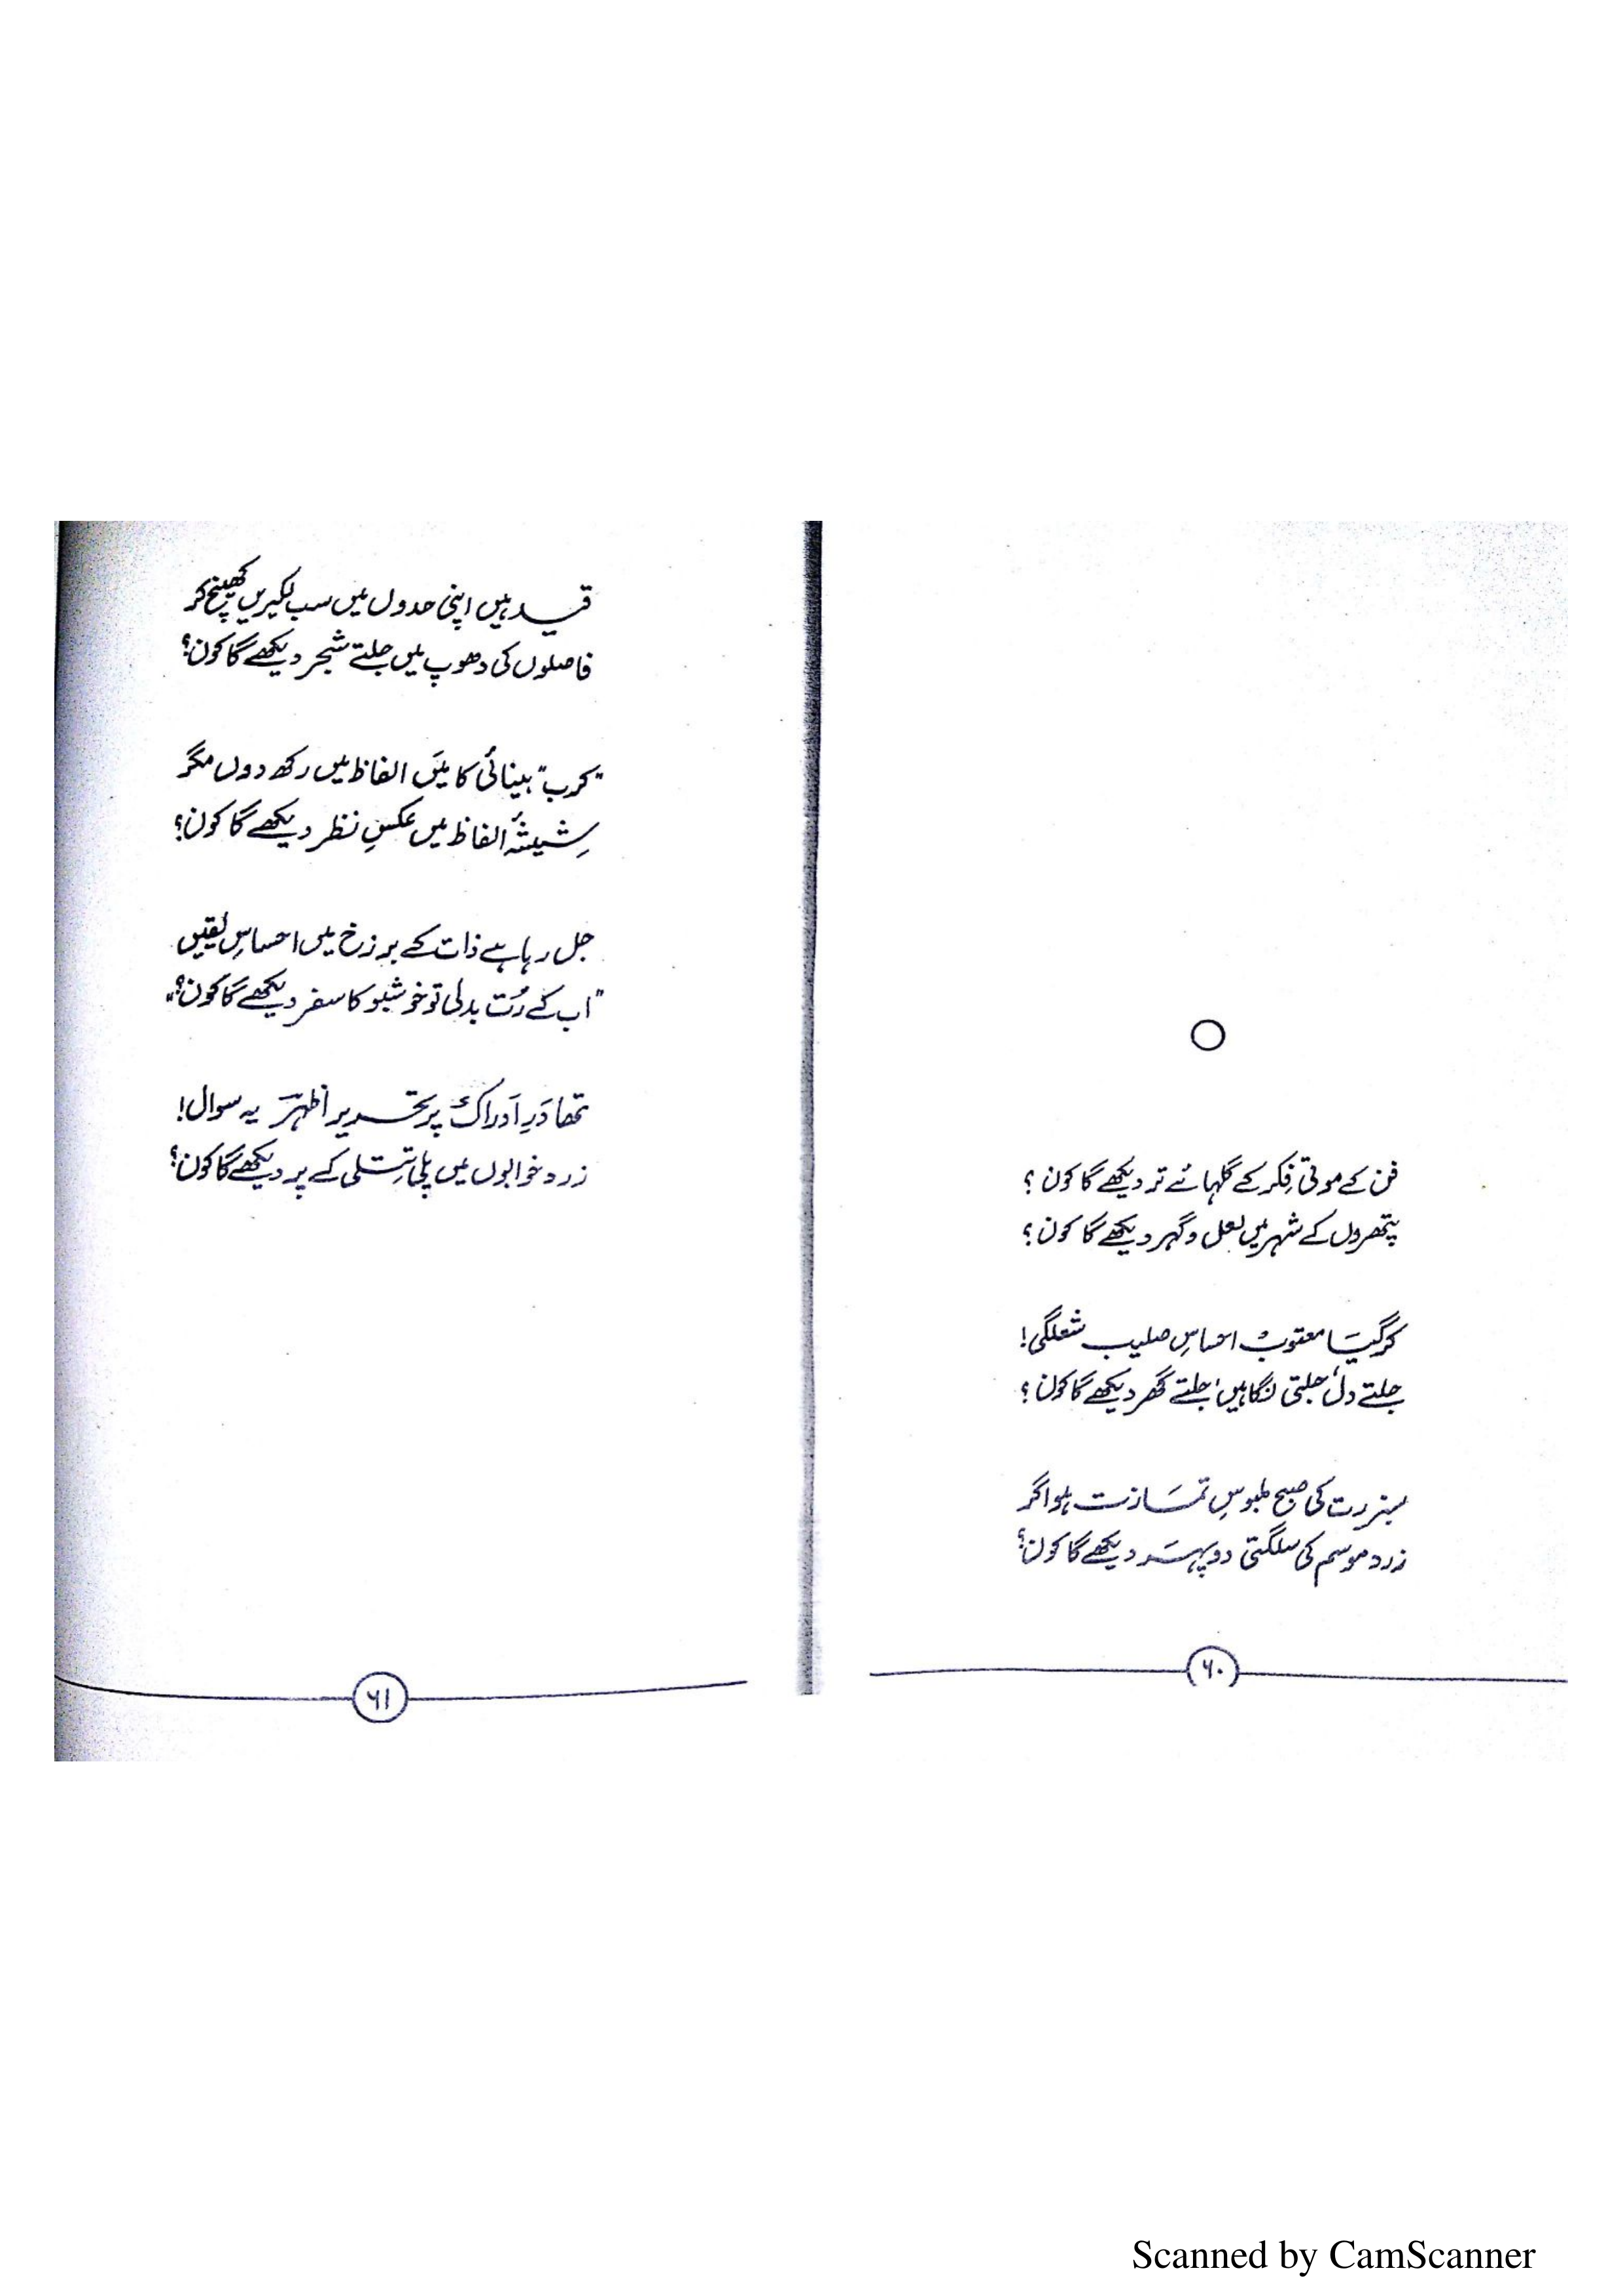 فن کے موتی فِکر کے گلہائے تر دیکھے گا کون ؟
پتھروں کے شہر میں لعل و گہر دیکھے گا کون ؟
کر گیَا معتوب احساسِ صلیب شعلگی!
جلتے دل، جلتی نگاہیں، جلتے گھر دیکھے گا کون ؟
سبز رت کی صبح ملبوسِ تمَازت ہو اگر
زرد موسم کی سلگتی دوپہَر دیکھے گا کون؟
۶۰
قید ہیں اپنی حدوں میں سب لکیریں کھینچ کر
فاصلوں کی دھوپ میں جلتے شجر دیکھے گا کون؟
"کرب" بینائی کا میَں الفاظ میں رکھ دوں مگر
شِیشۂ الفاظ میں عکسِ نظر دیکھے گا کون؟
جل رہا ہے ذات کے برزخ میں احساسِ یقیں
"اب کے رُت بدلی تو خوشبو کا سفر دیکھے گا کون؟"
تھا دَرِ اَدراک پر تحریر اظہرؔ یہ سوال!
زرد خوابوں میں پلی تِتلی کے پر دیکھے گا کون؟
۶۱
Scanned by CamScanner